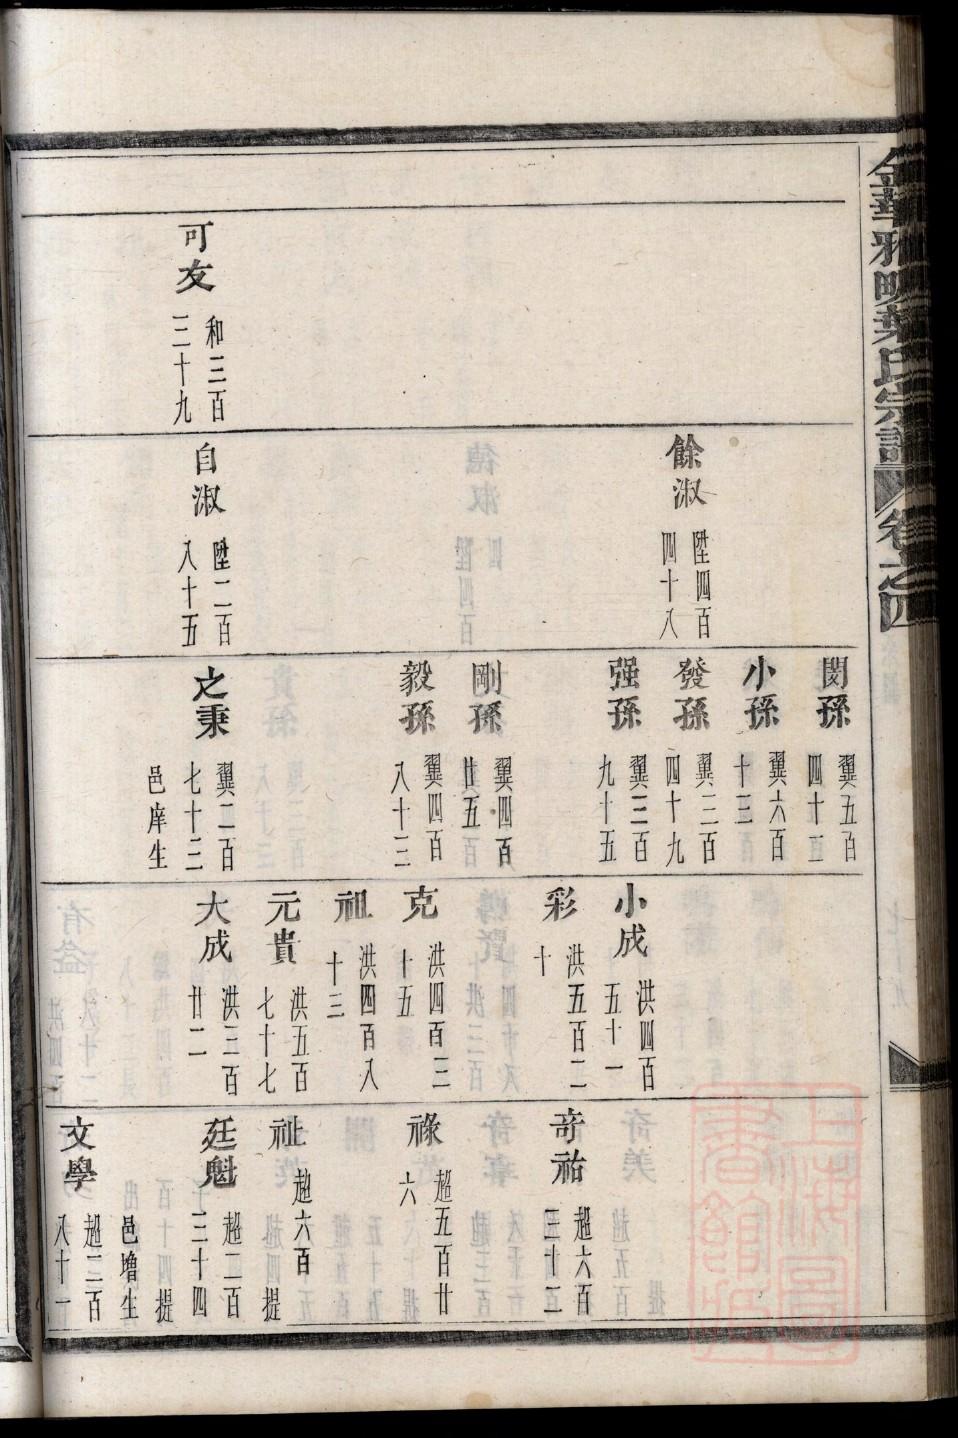 金華雅畈葉氏宗譜 卷之四
可友
和三百
三十九
餘淑
陞四百
四十八
自淑
陞二百
八十五
閔孫
翼五百
四十五
小孫
翼六百
十三
發孫
翼三百
四十九
强孫
翼三百
九十五
剛孫
翼四百
廿五
毅孫
翼四百
八十三
之秉
翼二百
七十三
邑庠生
小成
洪四百
五十一
彩
洪五百二
十
克
洪四百三
十五
祖
洪四百八
十三
元貴
洪五百
七十七
大成
洪三百
廿二
奇祐
超六百
三十二
祿
超五百廿
六
祉
超六百
提
廷魁
超二百
三十四
提
邑增生
文學
超三百
八十一
上海圖
書館藏